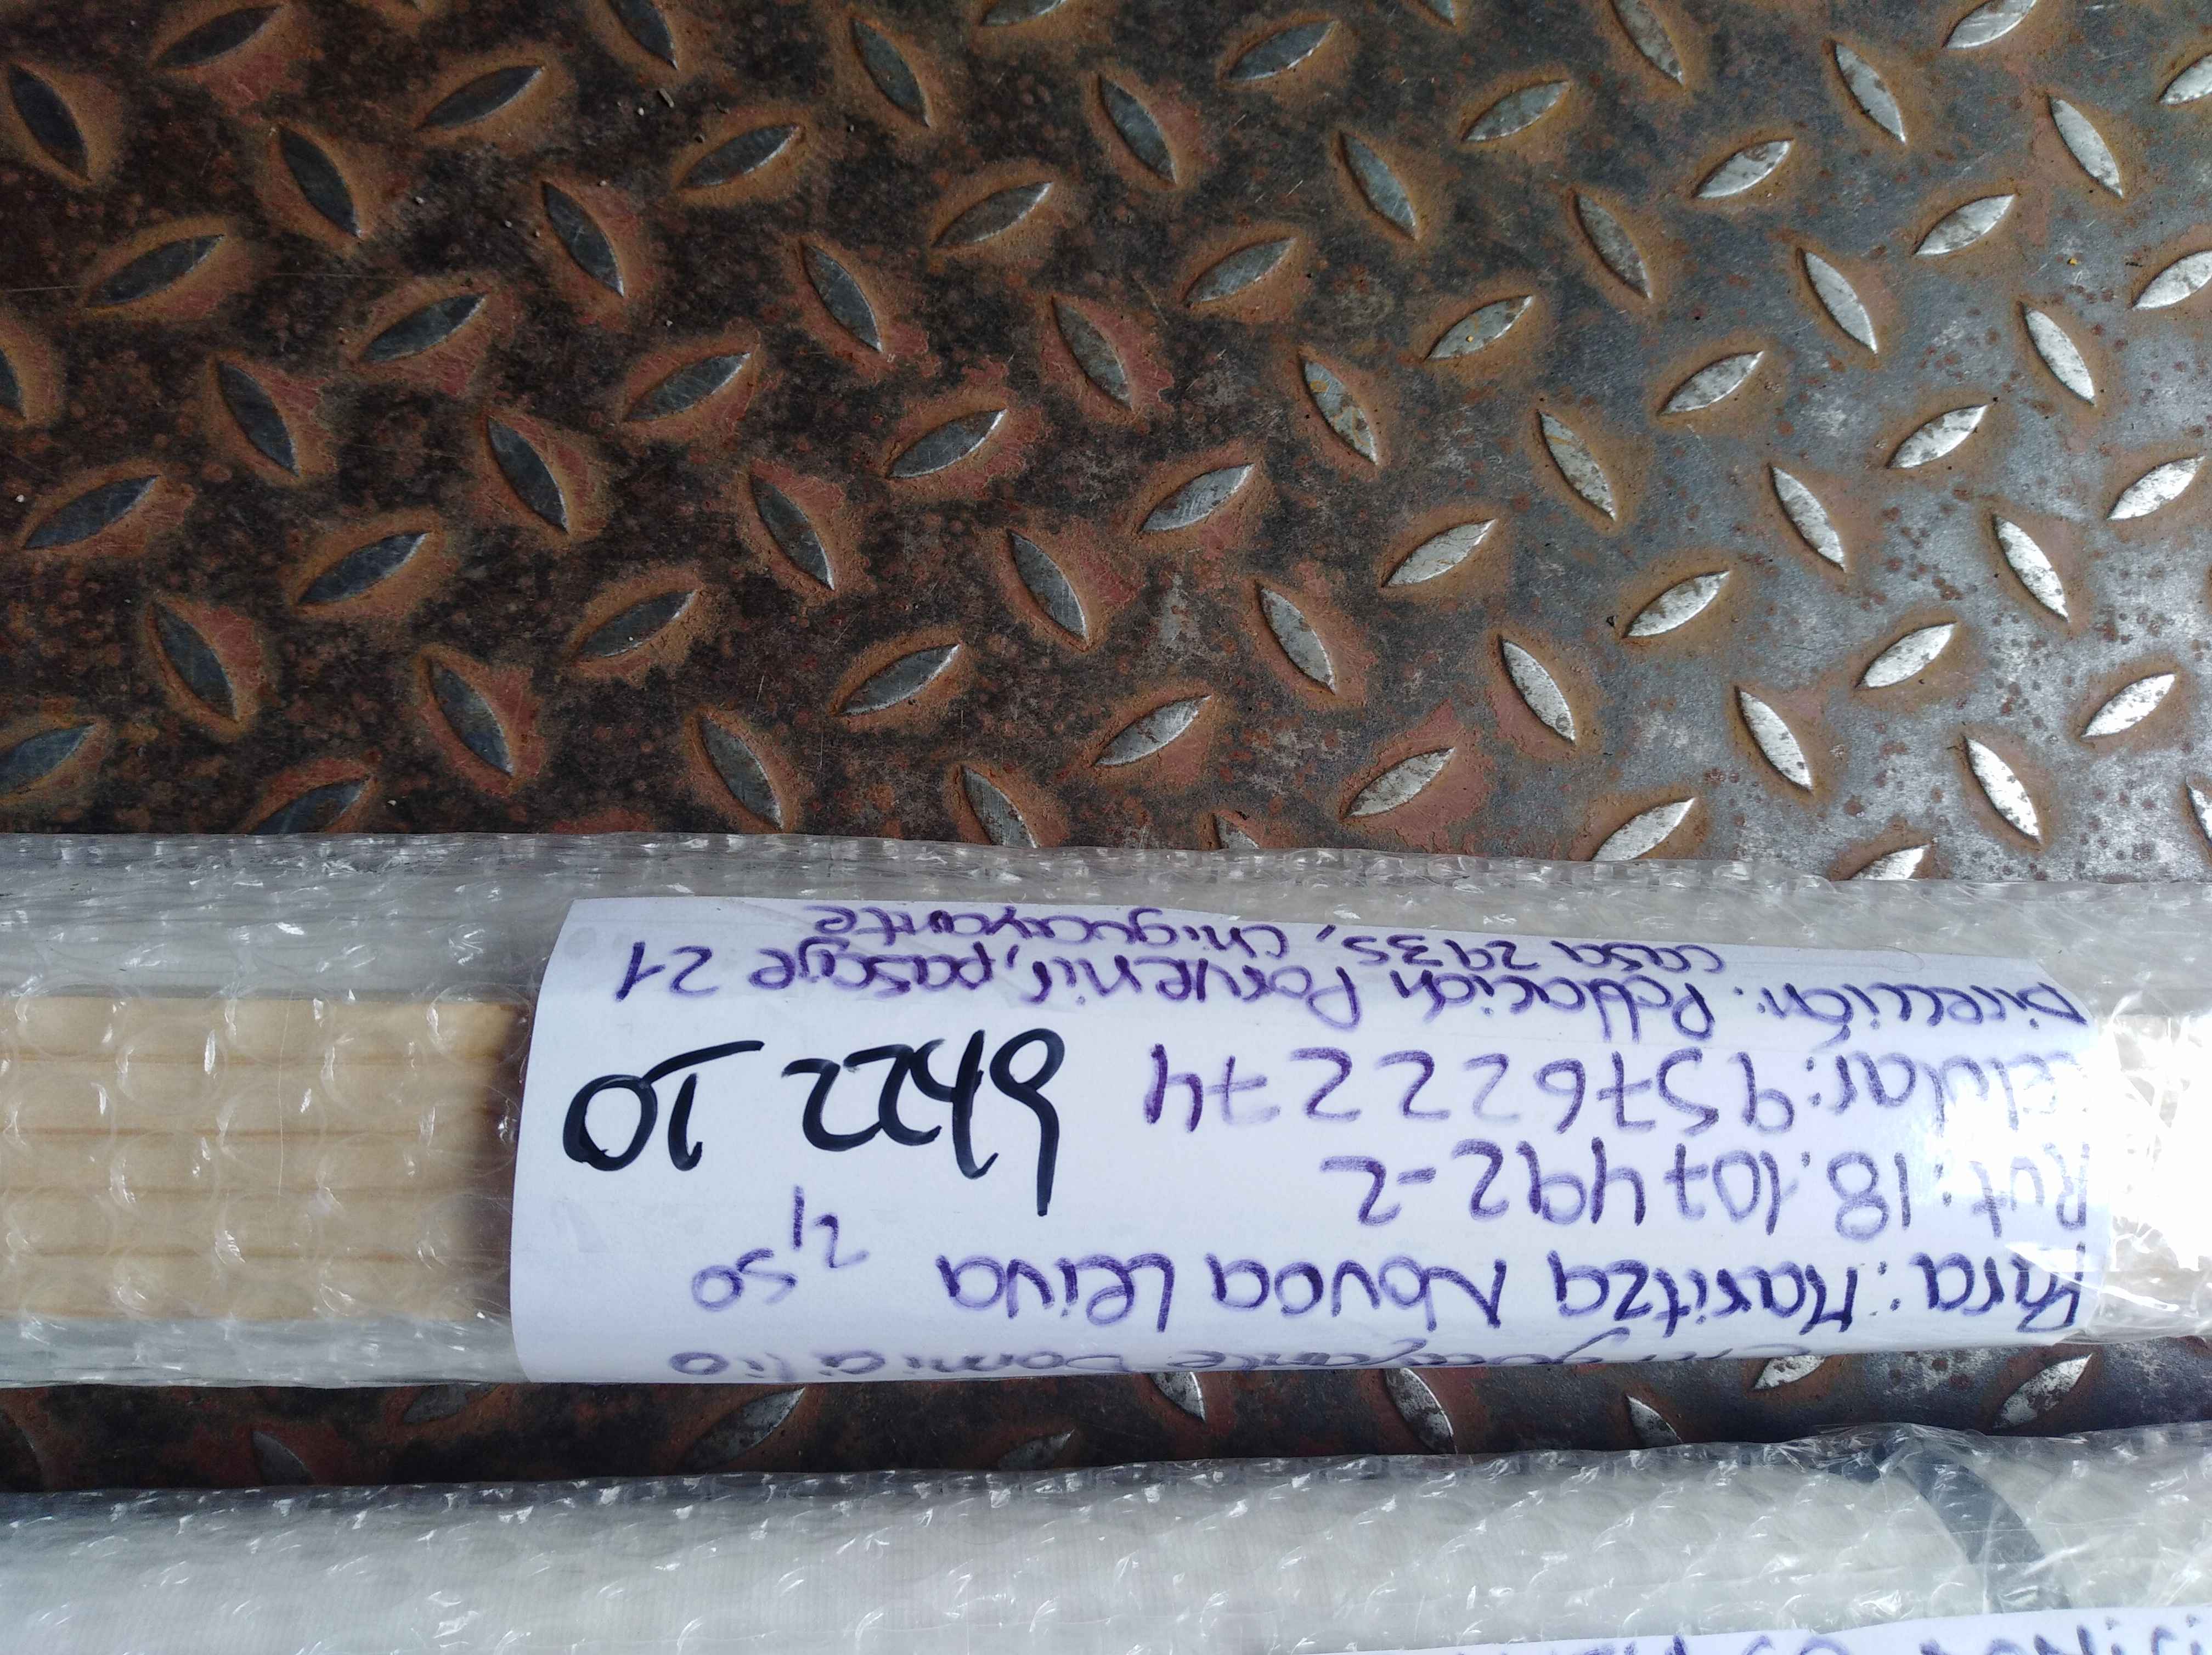 Chiguayante Domicilio
Para: Maritza Novoa Leiva 2,50
Rut: 18.107492-2
Celular: 957622274
Dirección: Población Porvenir, pasaje 21
casa 2935, chiguayante
OT 2249